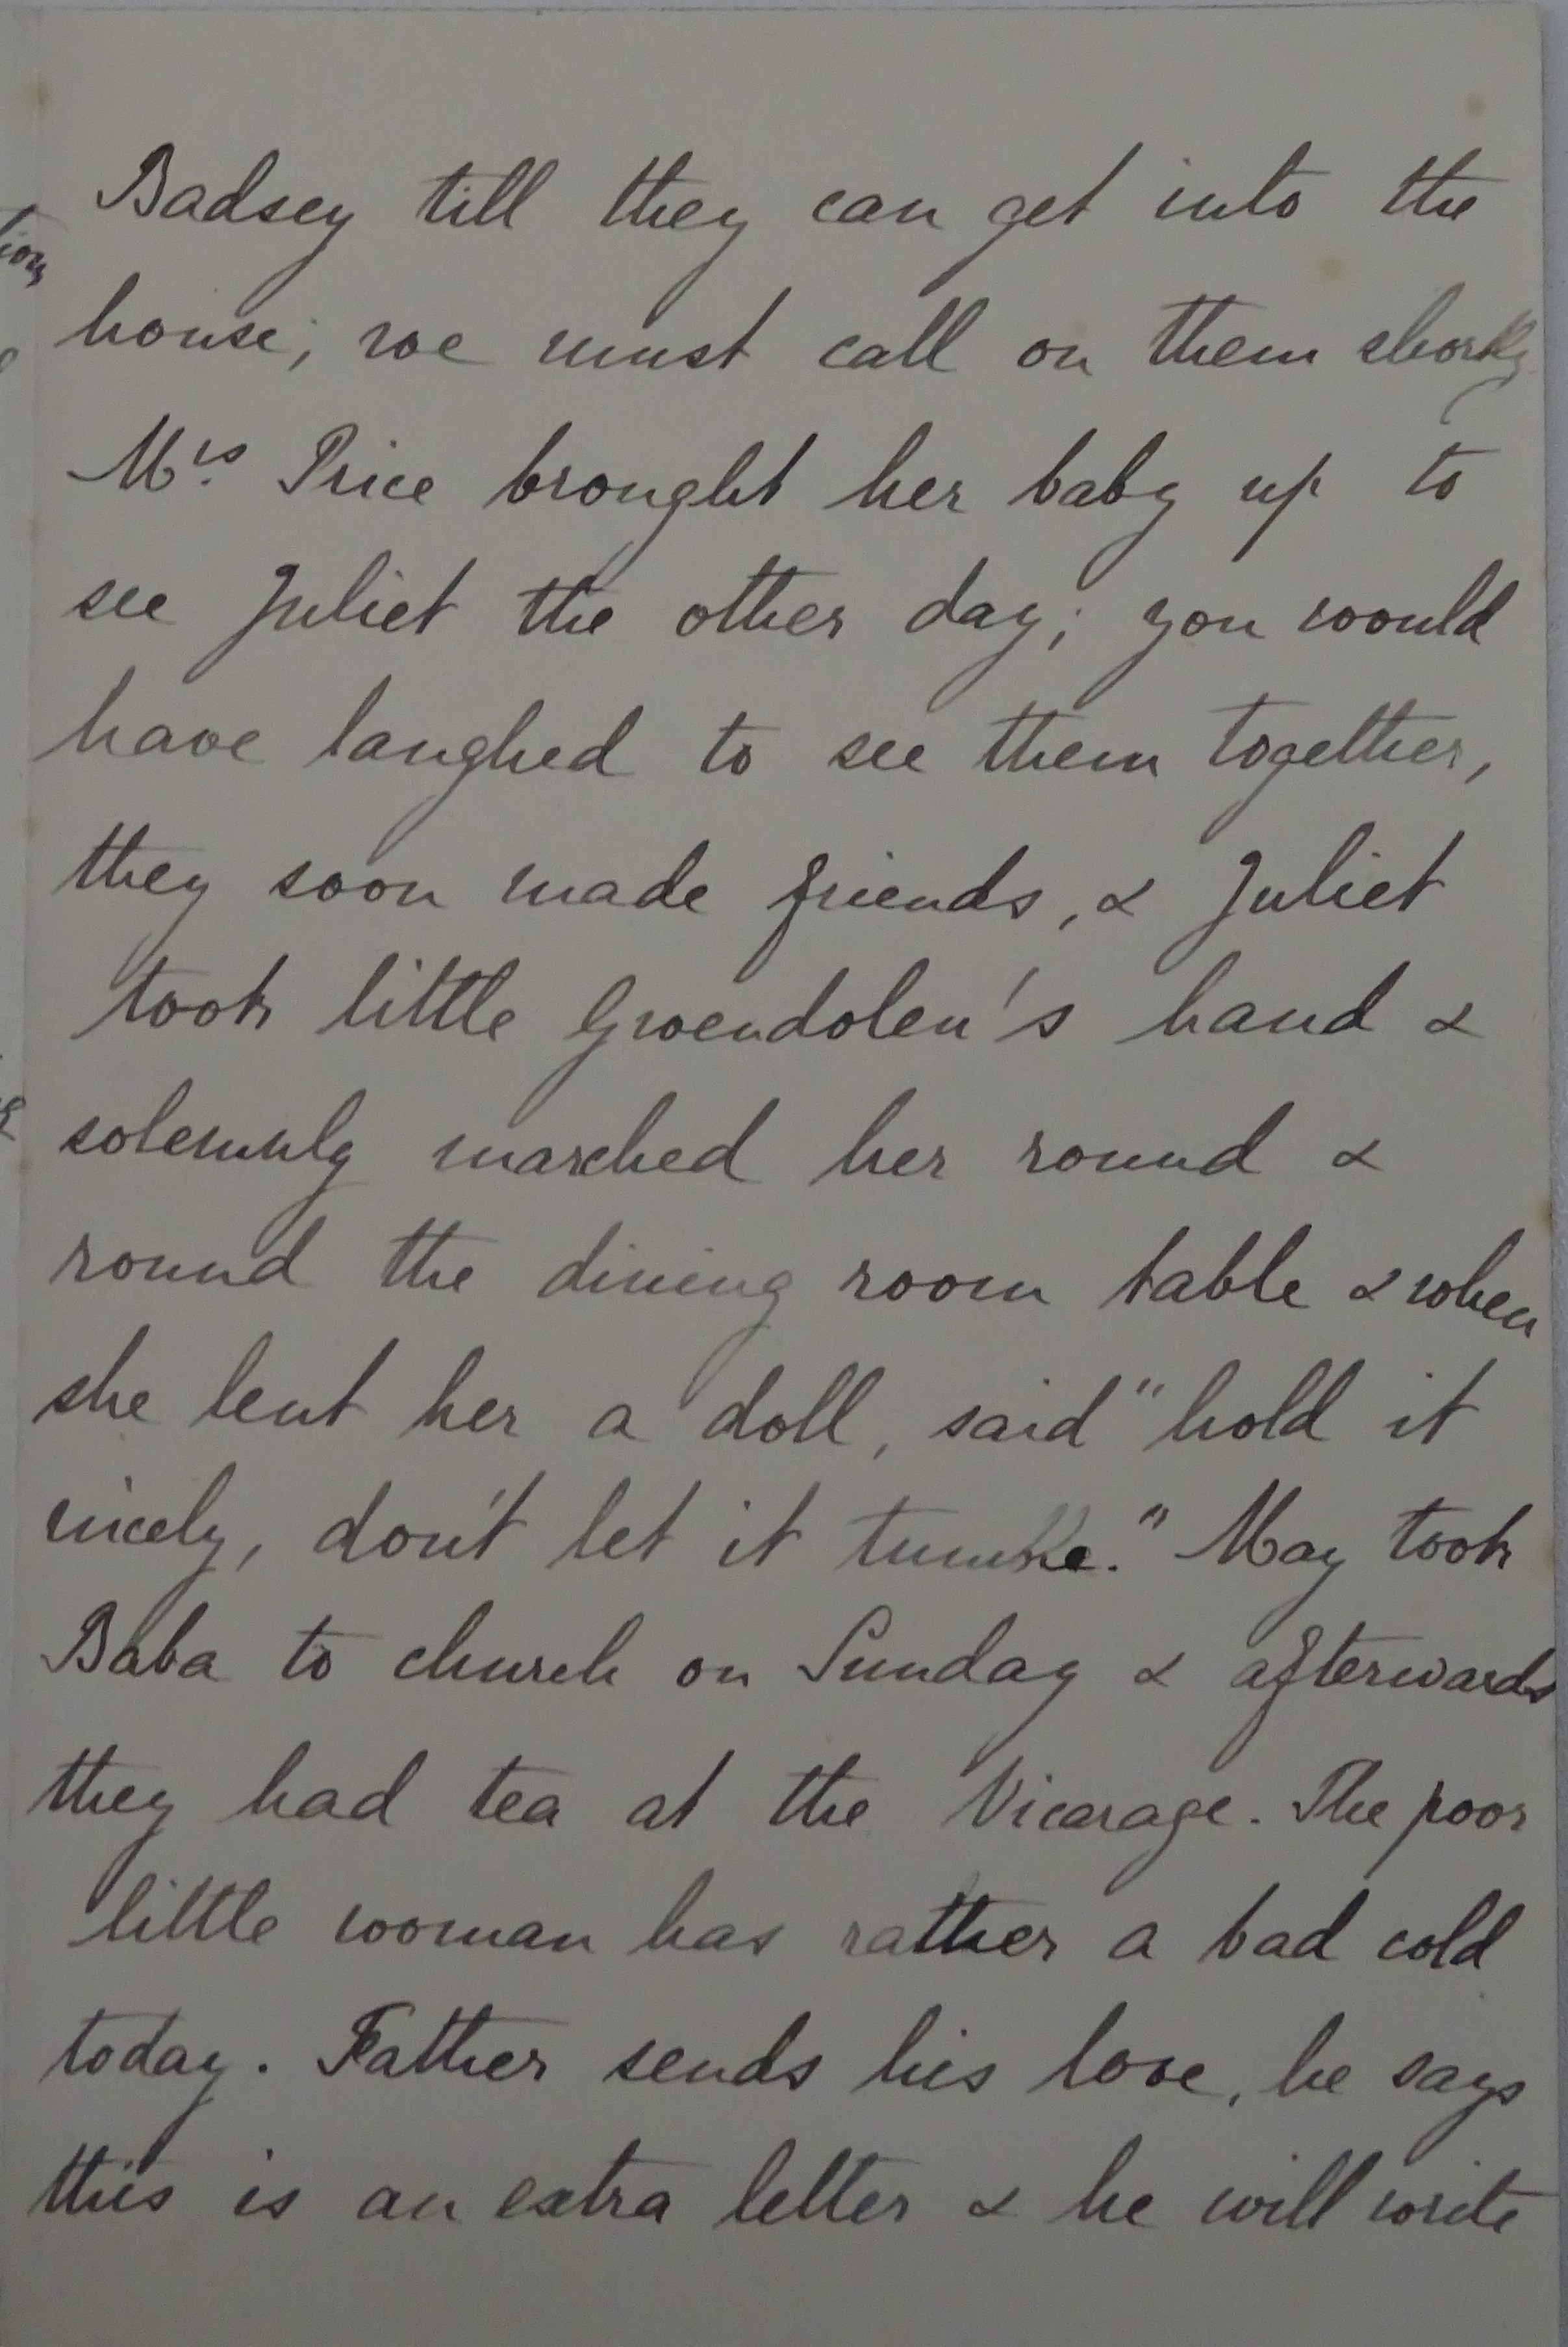 Badsey till they can get into the
house; we must call on them shortly
Mrs. Price brought her baby up to
see Juliet the other day; you would
have laughed to see them together,
they soon made friends, & Juliet
took little Gwendolen's hand &
solemnly marched her round &
round the dining room table & when
she lent her a doll, said "hold it
nicely, don't let it tumke." May took
Baba to church on Sunday & afterwards
they had tea at the Vicarage. The poor
little woman has rather a bad cold
today. Father sends his love, he says
this is an extra letter & he will write